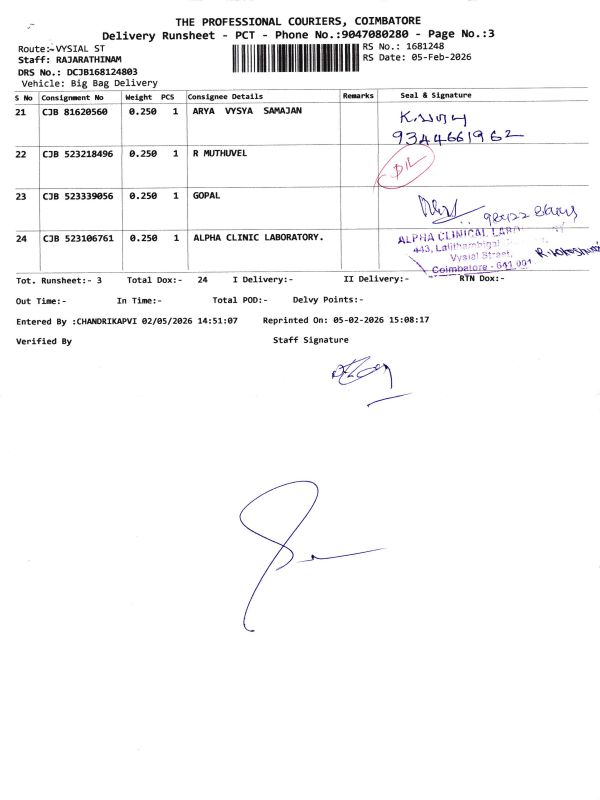 THE PROFESSIONAL COURIERS, COIMBATORE
Delivery Runsheet - PCT - Phone No.:9047080280 - Page No.:3
Route:-VYSIAL ST
RS No.: 1681248
Staff: RAJARATHINAM
RS Date: 05-Feb-2026
DRS No.: DCJB168124803
Vehicle: Big Bag Delivery
S No Consignment No Weight PCS Consignee Details Remarks Seal & Signature
21 CJB 81620560 0.250 1 ARYA VYSYA SAMAJAN
9344661962
22 CJB 523218496 0.250 1 R MUTHUVEL
23 CJB 523339056 0.250 1 GOPAL
24 CJB 523106761 0.250 1 ALPHA CLINIC LABORATORY.
ALPHA CLINICAL
443, Lalithambigai
Vysial Street,
Coimbatore - 641 001
Tot. Runsheet:- 3 Total Dox:- 24 I Delivery:- II Delivery:- RTN Dox:-
Out Time:- In Time:- Total POD:- Delvy Points:-
Entered By :CHANDRIKAPVI 02/05/2026 14:51:07 Reprinted On: 05-02-2026 15:08:17
Verified By Staff Signature